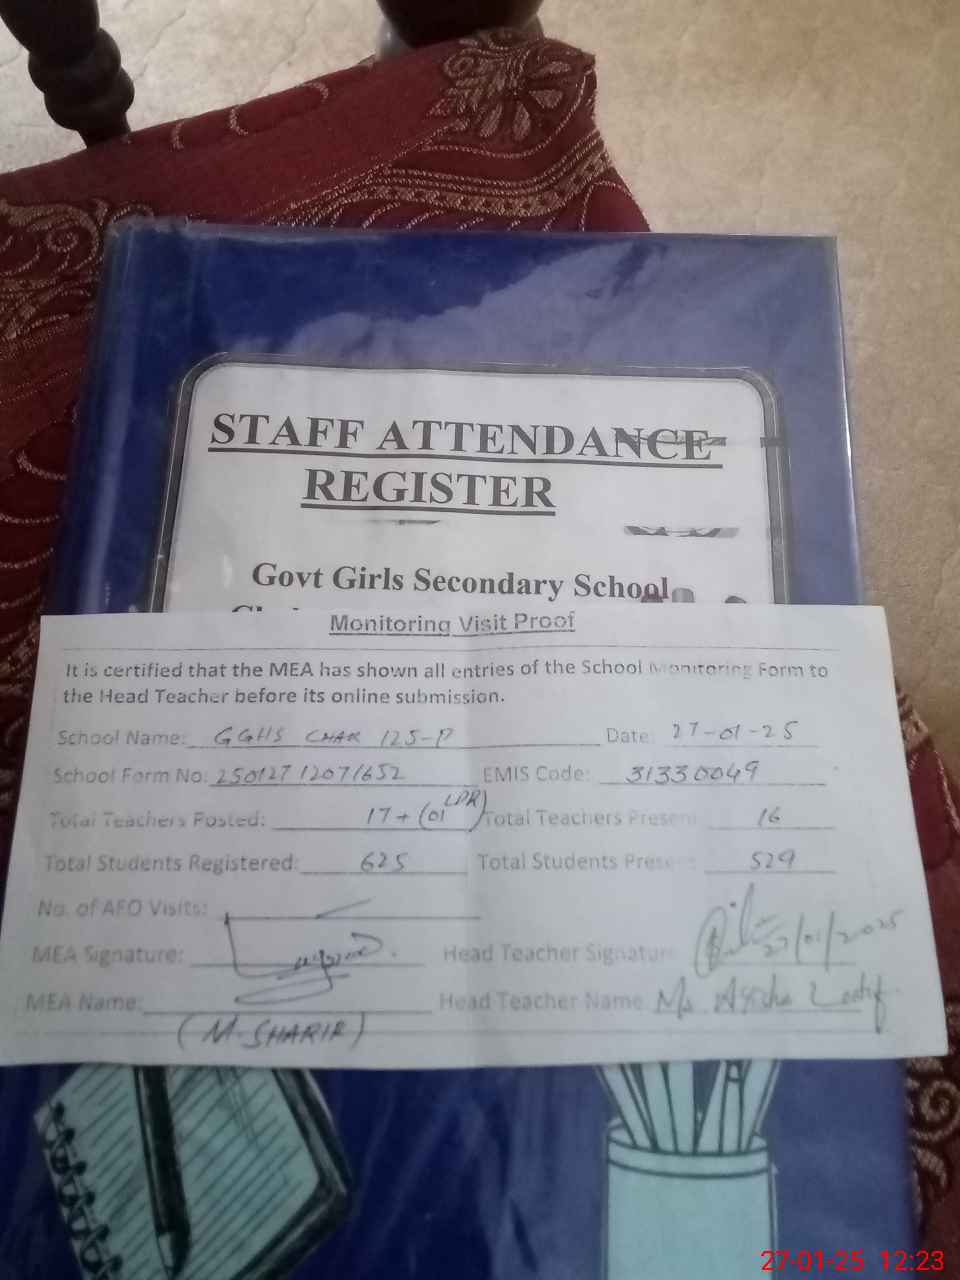 STAFF ATTENDANCE
REGISTER
Govt Girls Secondary School
Monitoring Visit Proof
It is certified that the MEA has shown all entries of the School Monitoring Form to
the Head Teacher before its online submission.
School Name: GGHS CHAK 125-P Date: 27-01-25
School Form No: 250127 12071652 EMIS Code: 31330049
Total Teachers Posted: 17 + (01 LPR) Total Teachers Present 16
Total Students Registered: 625 Total Students Present 529
No. of AEO Visits:
MEA Signature: Head Teacher Signature 27/01/2025
MEA Name: Head Teacher Name Ms. Ayesha Latif
(M. SHARIF)
27-01-25 12:23